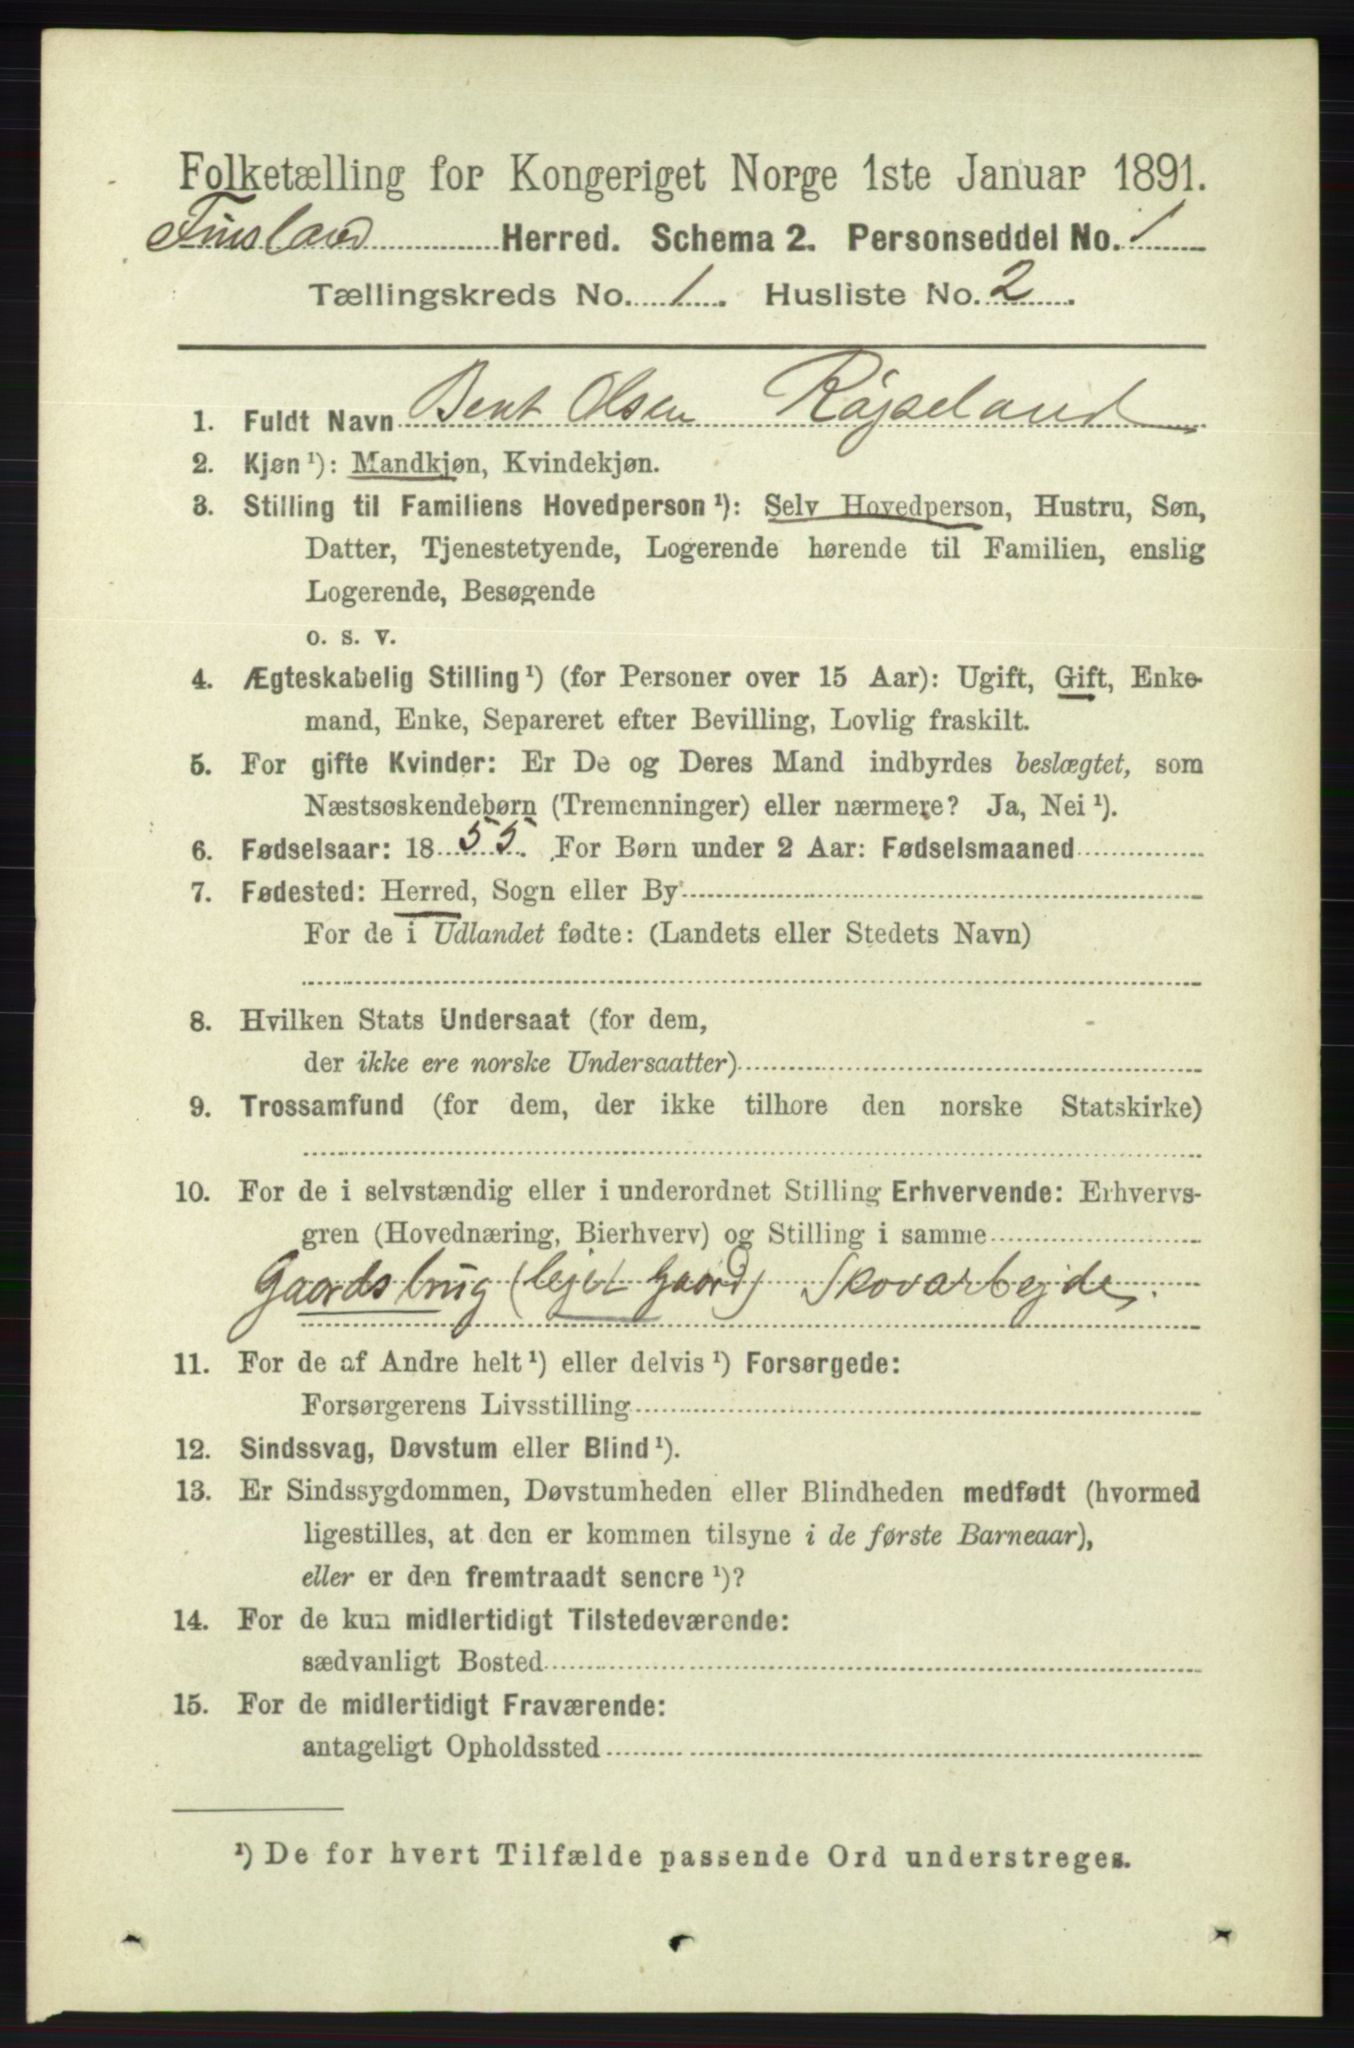 Folketælling for Kongeriget Norge 1ste Januar 1891.
Finsland Herred. Schema 2. Personseddel No. 1
Tællingskreds No. 1. Husliste No. 2.
1. Fuldt Navn Bent Olsen Røjseland
2. Kjøn¹): Mandkjøn, Kvindekjøn.
3. Stilling til Familiens Hovedperson¹): Selv Hovedperson, Hustru, Søn,
Datter, Tjenestetyende, Logerende hørende til Familien, enslig
Logerende, Besøgende
o. s. v.
4. Ægteskabelig Stilling¹) (for Personer over 15 Aar): Ugift, Gift, Enke-
mand, Enke, Separeret efter Bevilling, Lovlig fraskilt.
5. For gifte Kvinder: Er De og Deres Mand indbyrdes beslægtet, som
Næstsøskendebørn (Tremenninger) eller nærmere? Ja, Nei¹).
6. Fødselsaar: 1855. For Børn under 2 Aar: Fødselsmaaned
7. Fødested: Herred, Sogn eller By
For de i Udlandet fødte: (Landets eller Stedets Navn)
8. Hvilken Stats Undersaat (for dem,
der ikke ere norske Undersaatter)
9. Trossamfund (for dem, der ikke tilhøre den norske Statskirke)
10. For de i selvstændig eller i underordnet Stilling Erhvervende: Erhvervs-
gren (Hovednæring, Bierhverv) og Stilling i samme
Gaardsbrug (lejet Gaard) Skovarbejde.
11. For de af Andre helt¹) eller delvis¹) Forsørgede:
Forsørgerens Livsstilling
12. Sindssvag, Døvstum eller Blind¹).
13. Er Sindssygdommen, Døvstumheden eller Blindheden medfødt (hvormed
ligestilles, at den er kommen tilsyne i de første Barneaar),
eller er den fremtraadt senere¹)?
14. For de kun midlertidigt Tilstedeværende:
sædvanligt Bosted
15. For de midlertidigt Fraværende:
antageligt Opholdssted
¹) De for hvert Tilfælde passende Ord understreges.